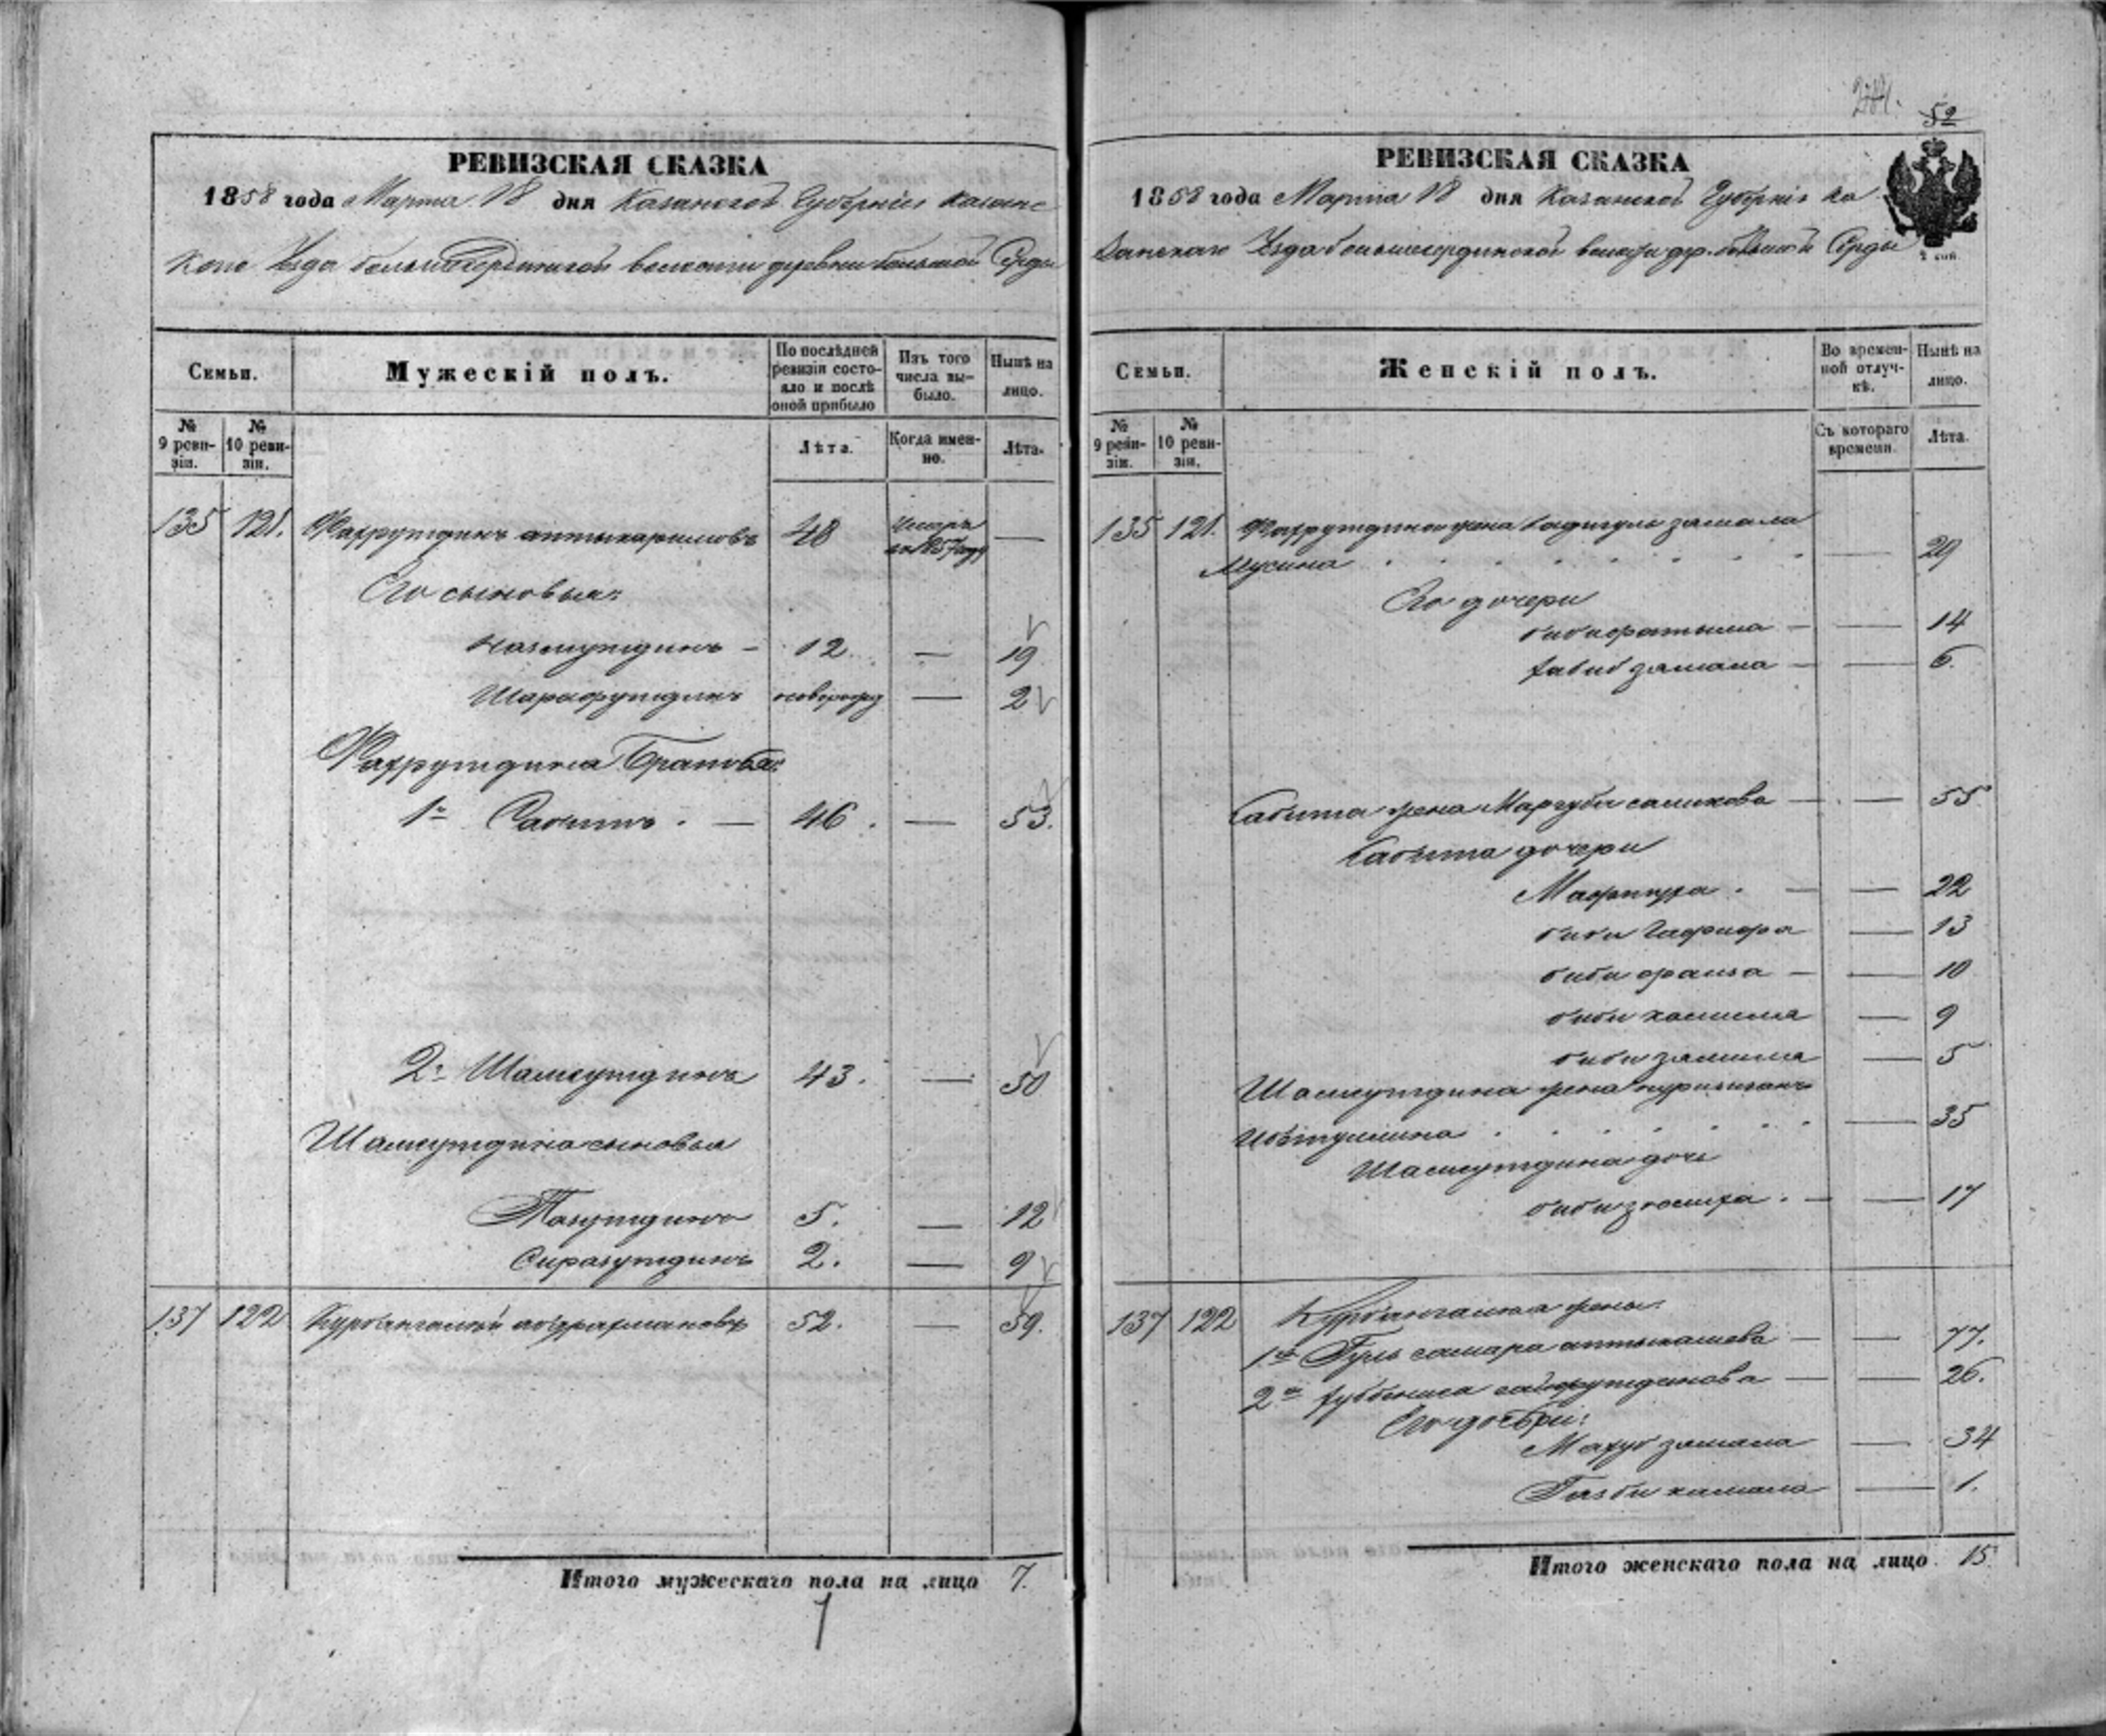 РЕВИЗСКАЯ СКАЗКА
1858 года Марта 18 дня Казанской Губернии Казанс
каго Уезда большесердинской волости деревни большой Серды
Семьи.
Мужескій полъ.
По послѣдней ревизіи состояло и послѣ оной прибыло
Изъ того числа выбыло.
Нынѣ на лицо.
№ 9 ревизіи.
№ 10 ревизіи.
Лѣта.
Когда именно.
Лѣта.
135 121. Фахрутдинъ аптыкаримовъ 48 умеръ въ 1857 году —
Его сыновья:
Назмутдинъ — 12. — 19
Шарафутдинъ новорожд — 2
Фахрутдина Братья:
1й Сабитъ. — 46. — 53.
2й Шамсутдинъ 43. — 50
Шамсутдина сыновья
Тазутдинъ 5. — 12
Сиразутдинъ 2. — 9
137 122 Курбангалей абдрахмановъ 52. — 59.
Итого мужескаго пола на лицо 7.
7
284.
52
РЕВИЗСКАЯ СКАЗКА
1858 года Марта 18 дня Казанской Губерніи Ка
занскаго Уезда большесердинской волости др. большой Серды
2 коп.
Семьи.
Женскій полъ.
Во временной отлучкѣ.
Нынѣ на лицо.
№ 9 ревизіи.
№ 10 ревизіи.
Съ котораго времени.
Лѣта.
135 121. Фахрутдина жена бадигуль замала
Мусина — 29
Его дочери
бибифатыма — — 14
хабиб замала — — 6.
Сабита жена Маргуба салихова — — 55
Сабита дочери
Мафтуха. — — 22
биби Гафифа — 13
биби фаиза — — 10
биби халима — 9
биби залима — 5
Шамсутдина жена нуризиганъ
Ибетуллина — 35
Шамсутдина дочь
биби зюлиха. — — 17
137 122 Курбангалея жены:
1я Гуль самара аптыкашева — — 77.
2я хуббниса сайфутдинова — — 26.
Его дочери:
Махуб замала — 34
Газби камала — 1.
Итого женскаго пола на лицо 15.